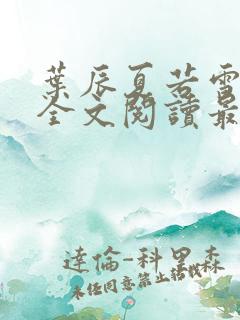 葉辰夏若雪
全文閱讀最
達倫-科里森
未經同意禁止轉載